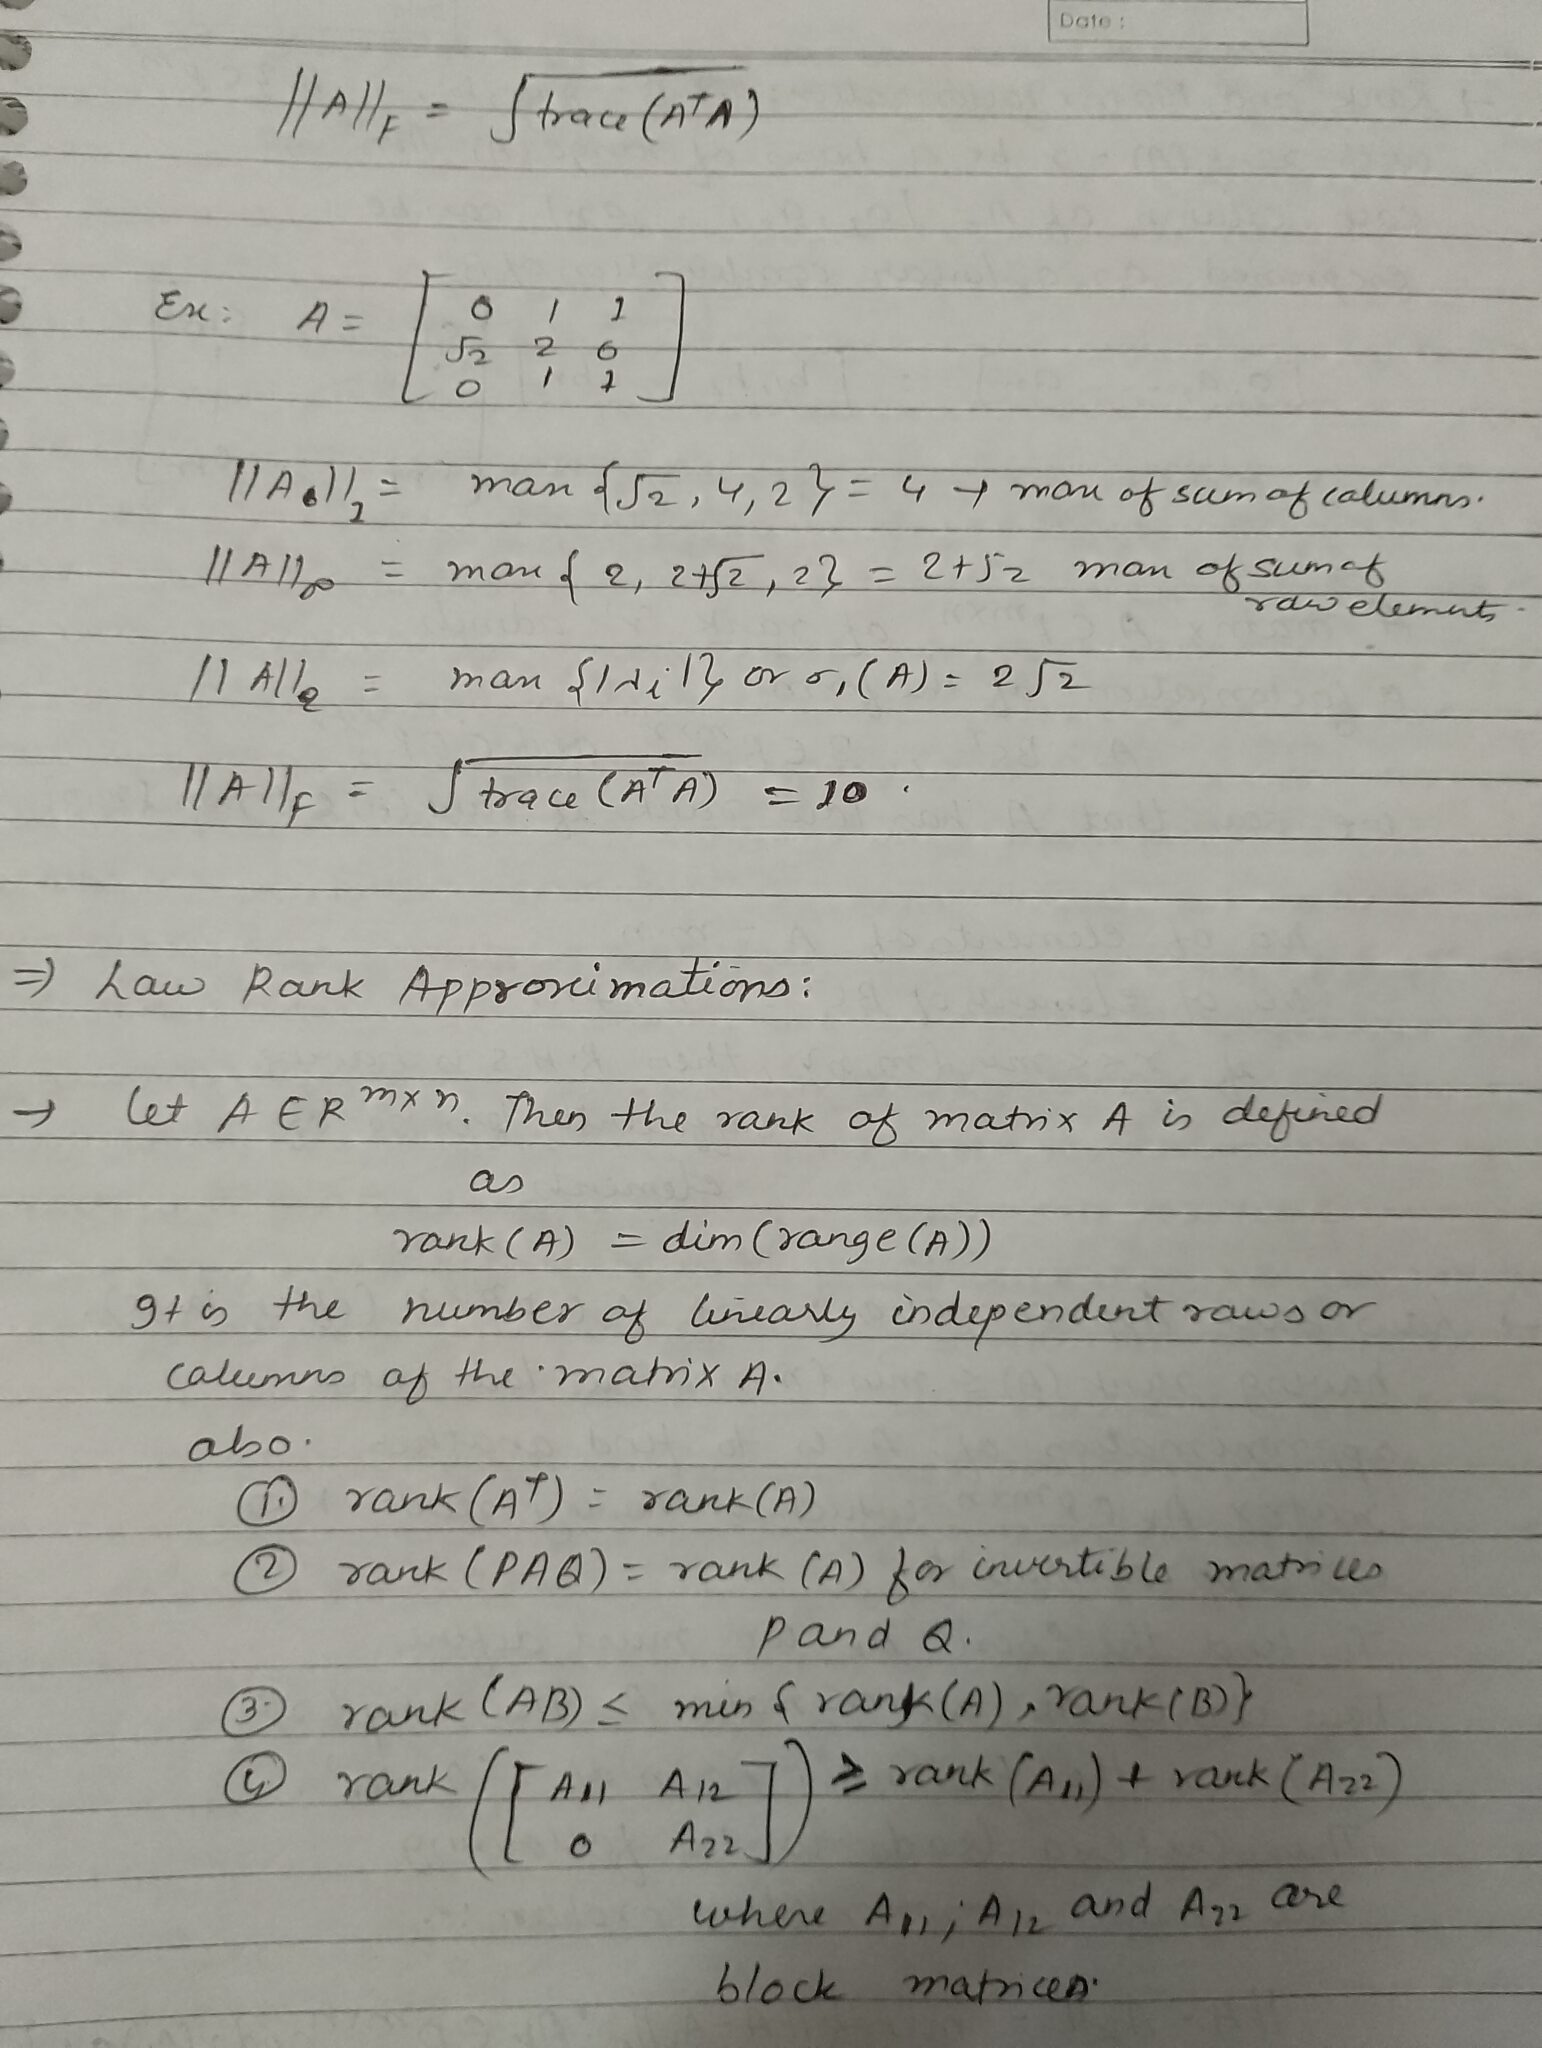 Date:
||A||_F = √trace(AᵀA)
Ex: A = [ 0 1 1
√2 2 0
0 1 1 ]
||A||₁ = max {√2, 4, 2} = 4 → max of sum of columns.
||A||∞ = max { 2, 2+√2, 2} = 2+√2 max of sum of
row elements.
||A||₂ = max {|λi|} or σ₁(A) = 2√2
||A||_F = √trace(AᵀA) = 10.
⇒ Low Rank Approximations:
→ Let A ∈ R^{m×n}. Then the rank of matrix A is defined
as
rank(A) = dim(range(A))
It is the number of linearly independent rows or
columns of the matrix A.
also.
① rank(Aᵀ) = rank(A)
② rank(PAQ) = rank(A) for invertible matrices
P and Q.
③ rank(AB) ≤ min{ rank(A), rank(B)}
④ rank([ A₁₁ A₁₂
0 A₂₂ ]) ≥ rank(A₁₁) + rank(A₂₂)
where A₁₁, A₁₂ and A₂₂ are
block matrices.